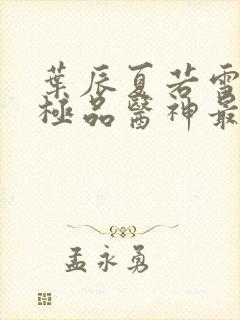 葉辰夏若雪
極品醫神最
孟永勇